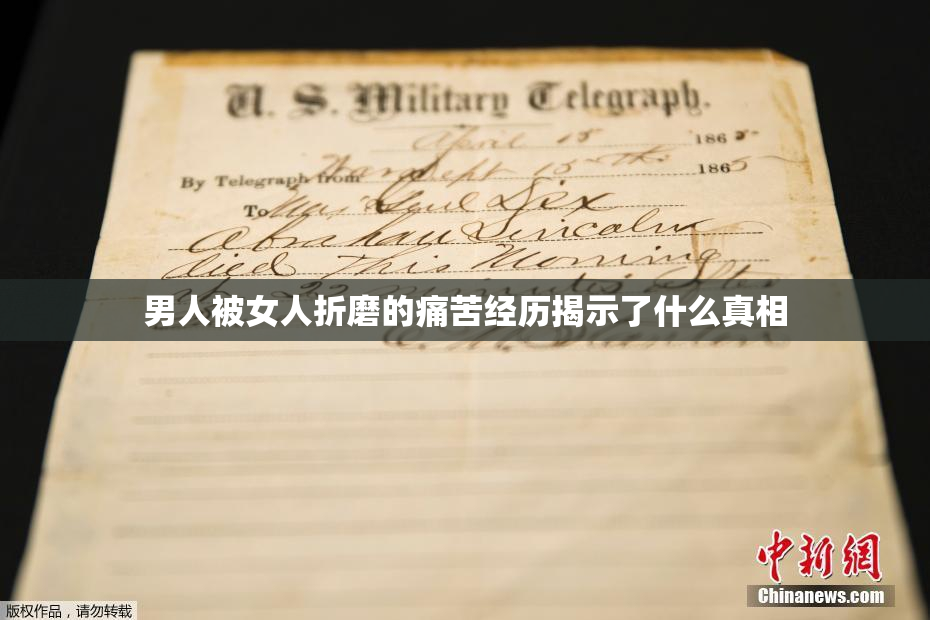 U. S. Military Telegraph.
April 15 1865
By Telegraph from Wash Dept 15th 1865
To Maj Genl Dix
Abraham Lincoln
died This Morning
at 22 minutes after
男人被女人折磨的痛苦经历揭示了什么真相
E. M. Stanton
中新網
Chinanews.com
版权作品,请勿转载